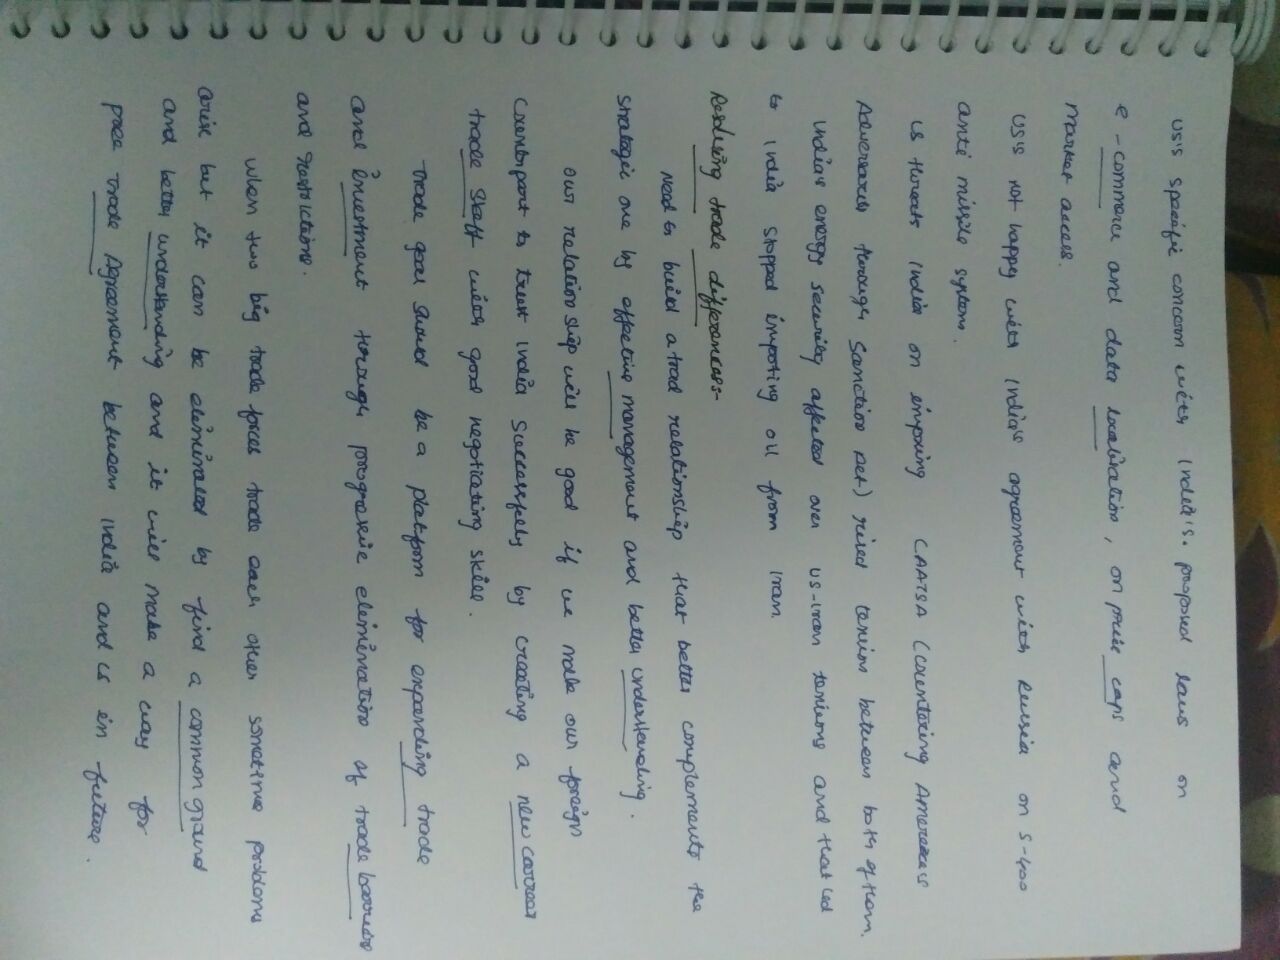 US's specific concern with India's. proposed laws on
e-commerce and data localisation, on price caps and
market access.
US's not happy with India's agreement with Russia on S-400
anti missile system.
US threats India on imposing CAATSA (Countering America's
Adversaries through Sanction Act) rised tension between both of them.
India's energy security affected over US-Iran tensions and that led
to India stopped importing oil from Iran
Resolving trade differences-
Need to build a trad relationship that better complements the
strategic one by effective management and better understanding.
Our relationship will be good if we make our foreign
Counterpart to trust India Successfully by creating a new career
trade staff with good negotiating skills.
Trade goal should be a platform for expanding trade
and investment through progressive elimination of trade barriers
and restrictions.
When two big trade forces trade each other sometime problems
arise but it can be eliminated by find a common ground
and better understanding and it will make a way for
free trade Agreement between India and US in future.